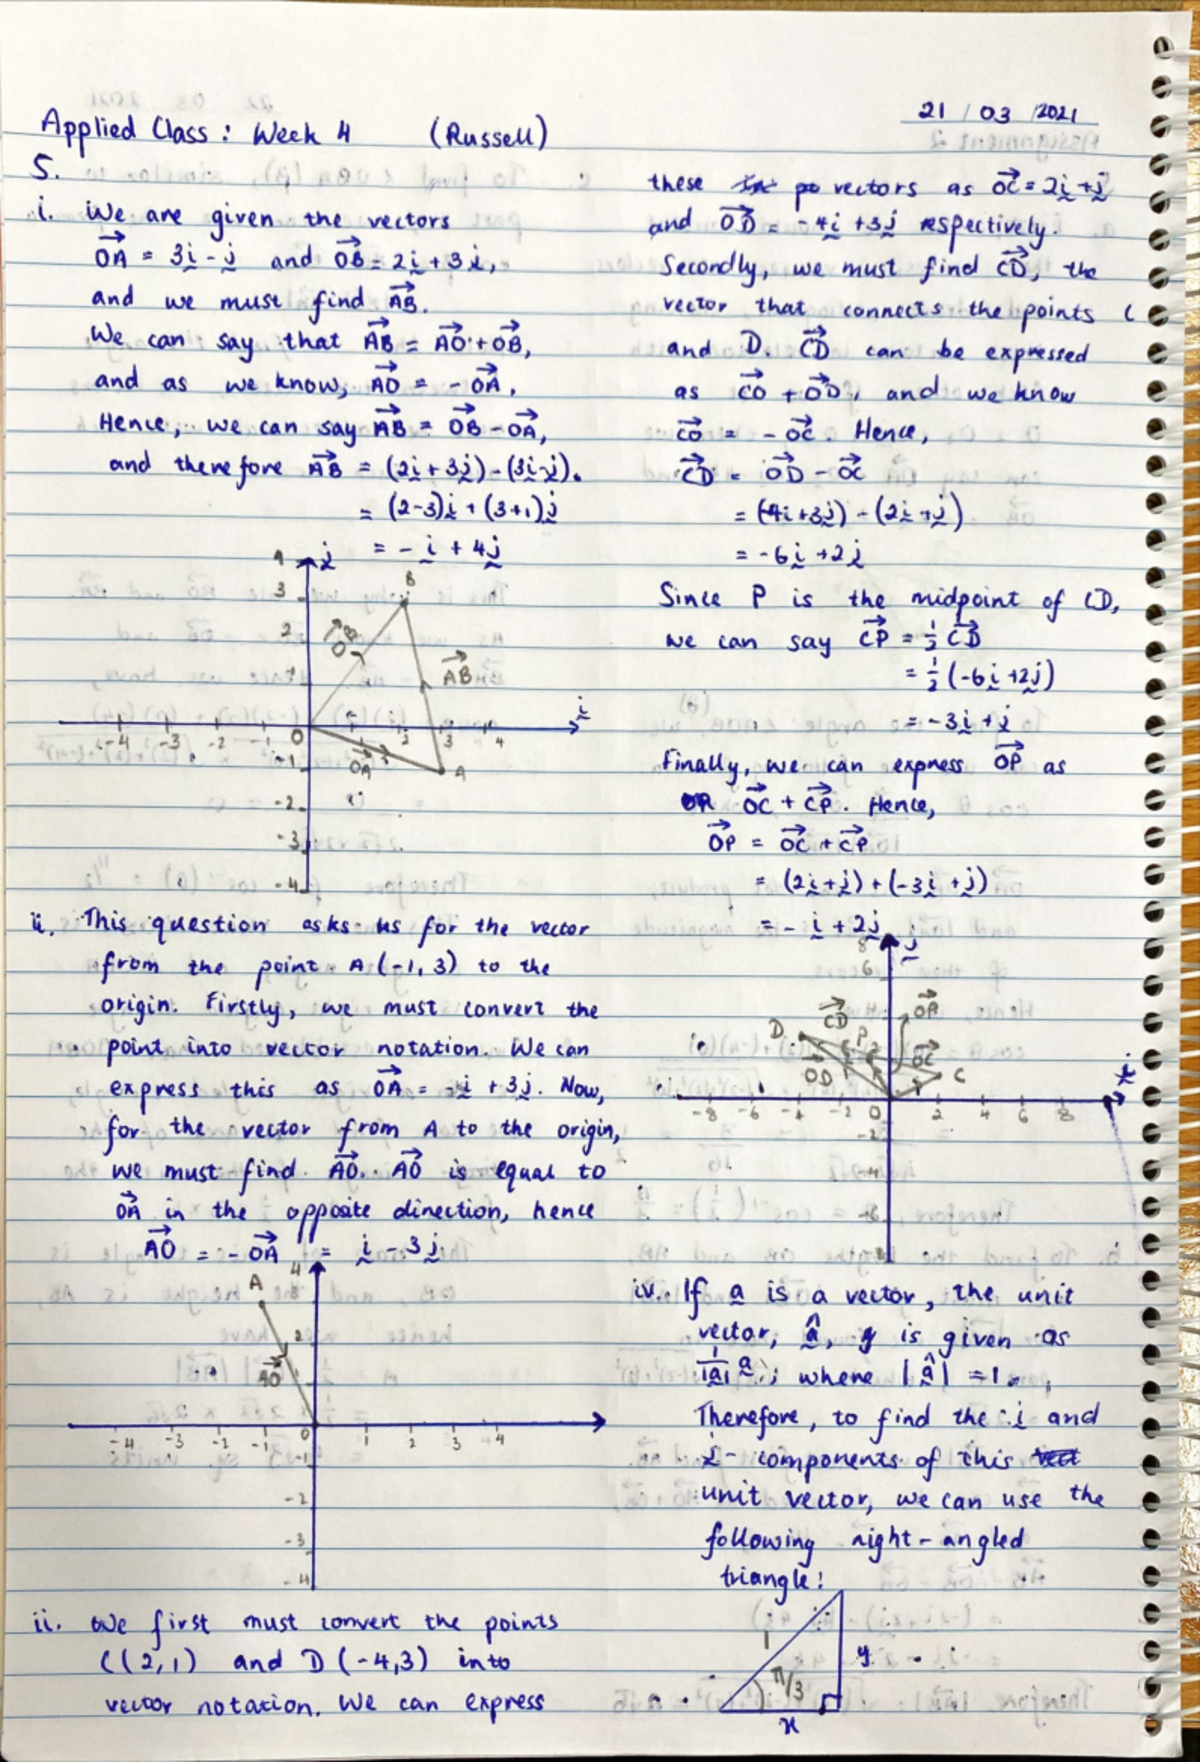 21 / 03 / 2021
Applied Class: Week 4 (Russell)
5.
i. We are given the vectors
OA = 3i - j and OB = 2i + 3j,
and we must find AB.
We can say that AB = AO + OB,
and as we know, AO = - OA.
Hence, we can say AB = OB - OA,
and therefore AB = (2i + 3j) - (3i - j).
= (2-3)i + (3+1)j
= - i + 4j
4 j
3 B
2 OB
AB
i
-4 -3 -2 -1 0 1 2 3 4
-1 OA A
-2
-3
-4
ii. This question asks us for the vector
from the point A (-1, 3) to the
origin. Firstly, we must convert the
point into vector notation. We can
express this as OA = - i + 3j. Now,
for the vector from A to the origin,
we must find AO. AO is equal to
OA in the opposite direction, hence
AO = - OA = i - 3j
A 4
3
2
AO 1
-4 -3 -2 -1 0 1 2 3 4
-1
-2
-3
-4
ii. We first must convert the points
C(2,1) and D (-4,3) into
vector notation. We can express
these vectors as OC = 2i + j
and OD = - 4i + 3j respectively.
Secondly, we must find CD, the
vector that connects the points C
and D. CD can be expressed
as CO + OD, and we know
CO = - OC. Hence,
CD = OD - OC
= (-4i + 3j) - (2i + j)
= -6i + 2j
Since P is the midpoint of CD,
we can say CP = 1/2 CD
= 1/2 (-6i + 2j)
= -3i + j
Finally, we can express OP as
OC + CP. Hence,
OP = OC + CP
= (2i + j) + (-3i + j)
= - i + 2j
8 j
6
D CD P OP
OD OC C
i
-8 -6 -4 -2 0 2 4 6 8
-2
-4
-6
-8
iv. If a is a vector, the unit
vector, â, is given as
1/|a| a, where |â| = 1.
Therefore, to find the i and
j - components of this
unit vector, we can use the
following right-angled
triangle:
1 y
π/3
x